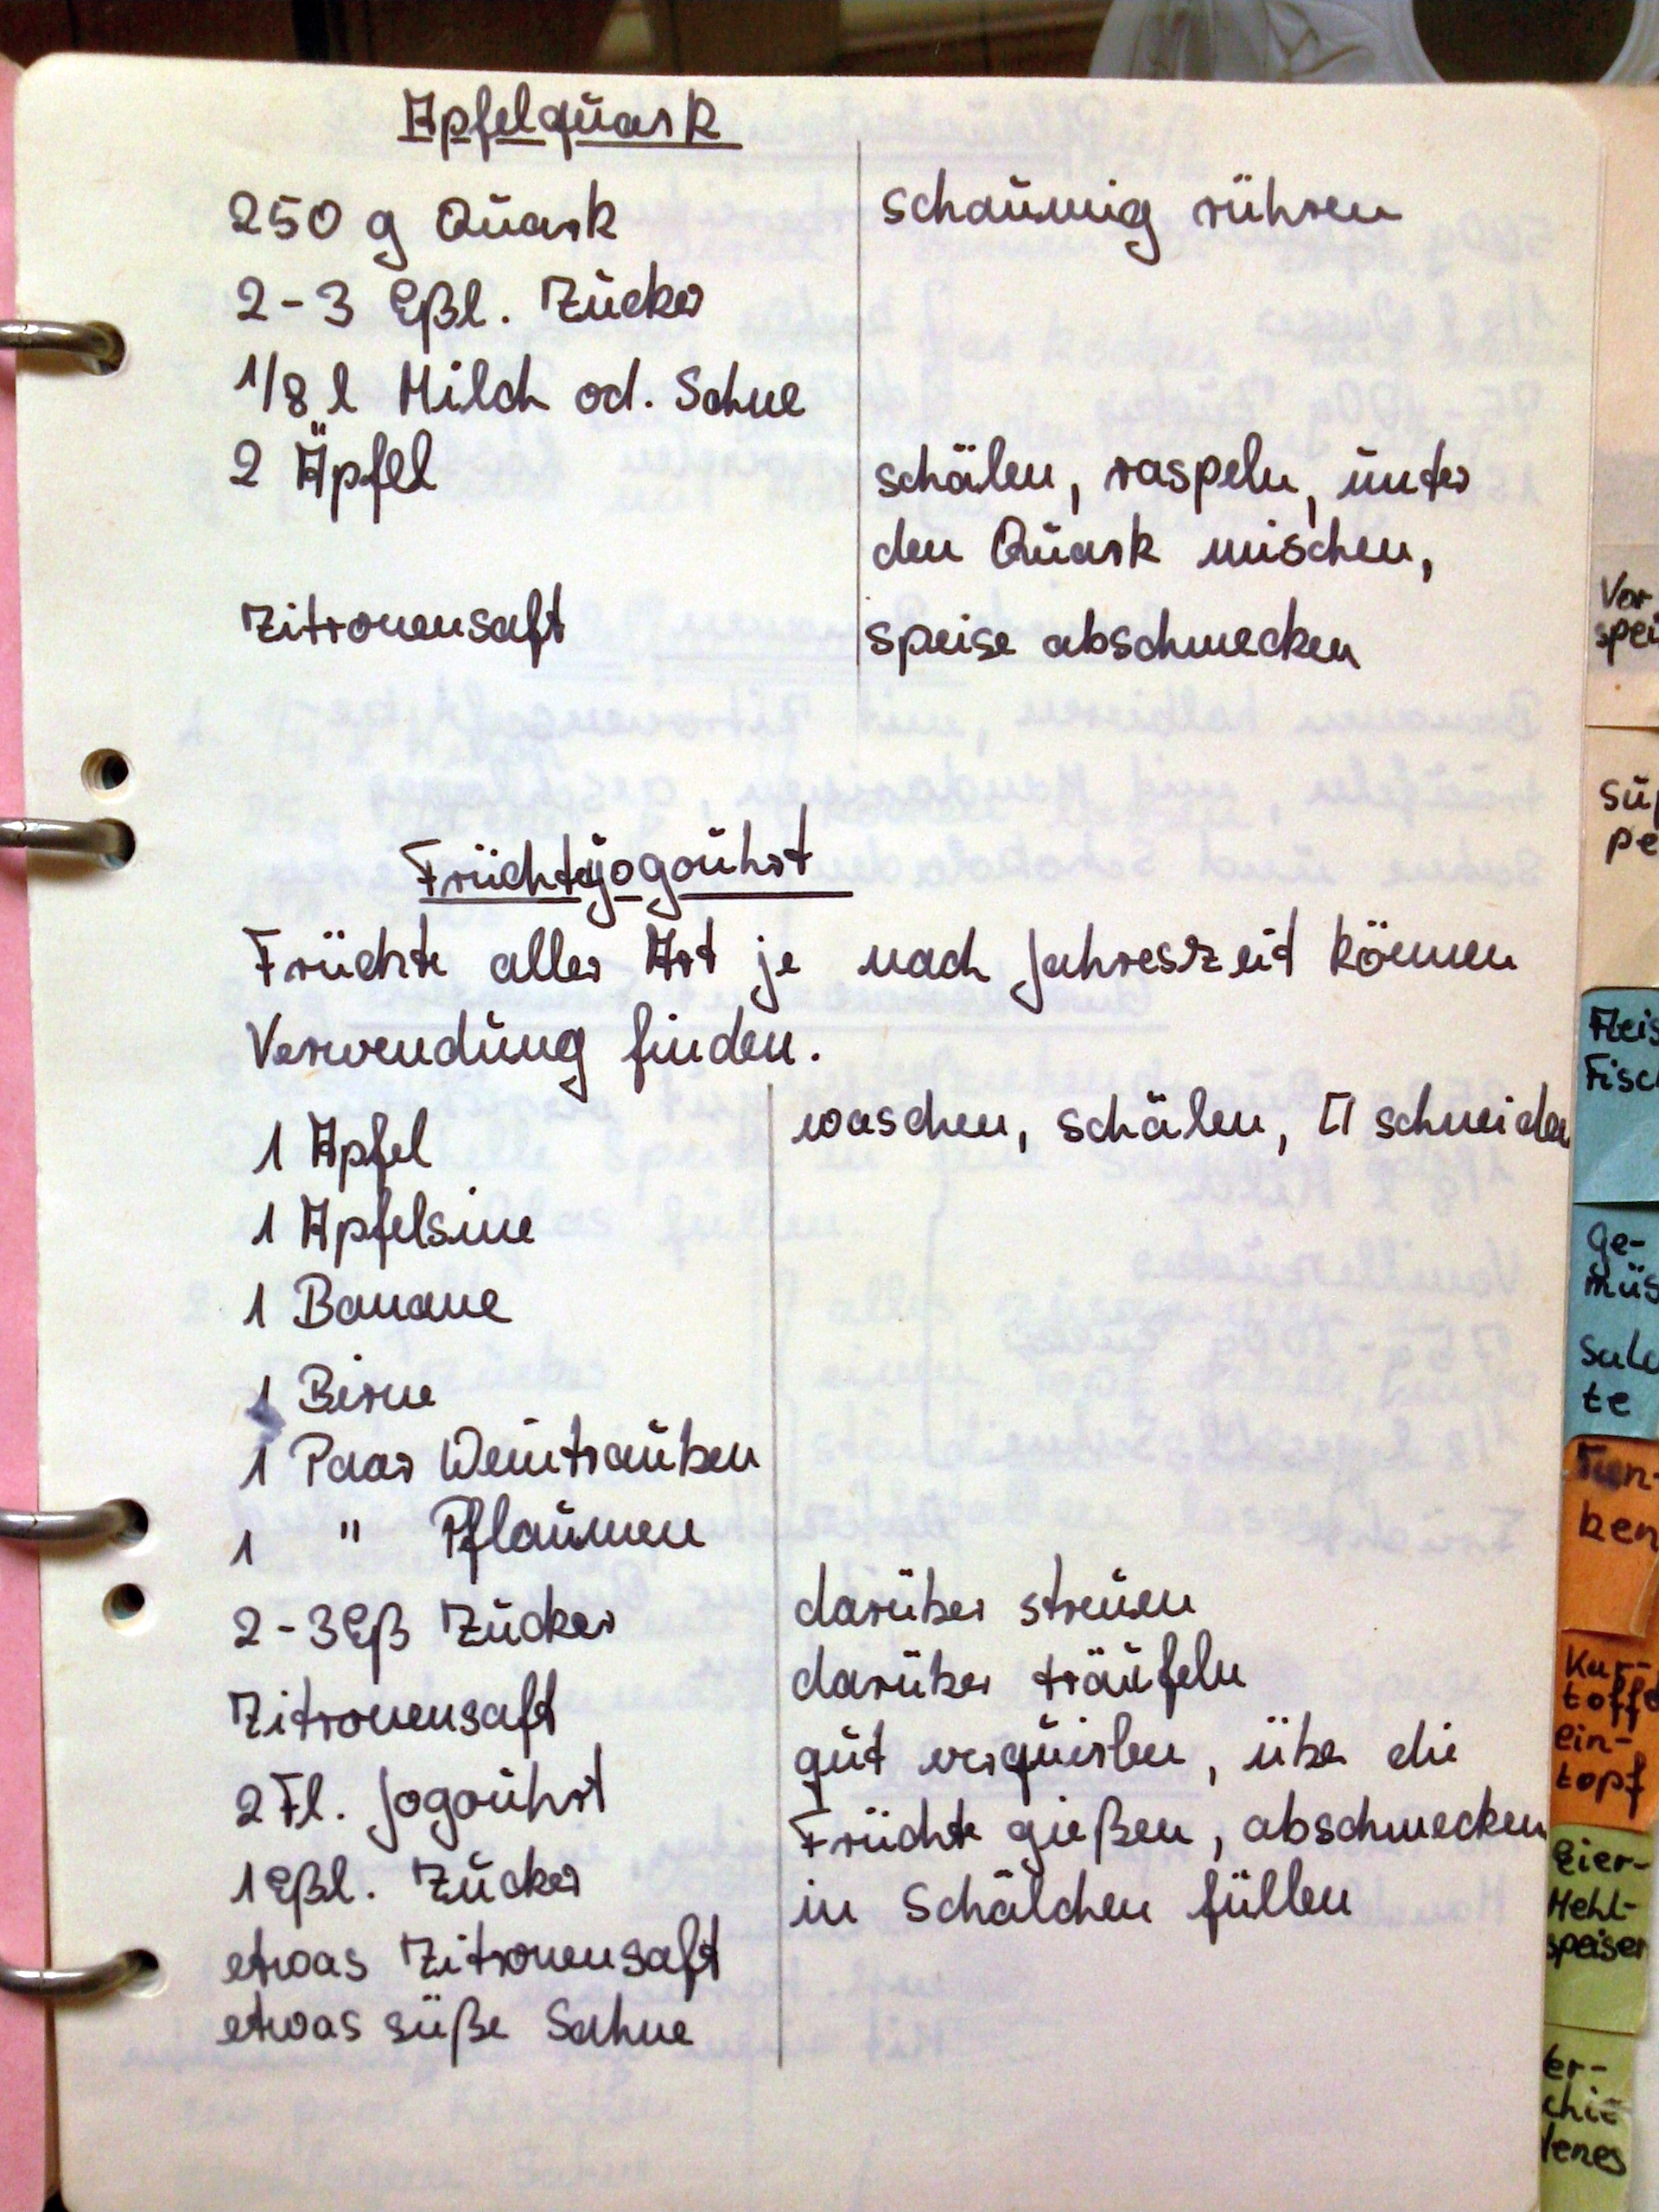 Apfelquark
250 g Quark
schaumig rühren
2-3 Eßl. Zucker
1/8 l Milch od. Sahne
2 Äpfel
schälen, raspeln, unter
den Quark mischen,
Zitronensaft
speise abschmecken
Früchtejogouhrt
Früchte aller Art je nach Jahreszeit können
Verwendung finden.
1 Apfel
waschen, schälen, schneiden
1 Apfelsine
1 Banane
1 Birne
1 Paar Weintrauben
1 " Pflaumen
2-3 Eß Zucker
darüber streuen
Zitronensaft
darüber träufeln
2 Fl. Jogouhrt
gut verquirlen, über die
Früchte gießen, abschmecken
1 Eßl. Zucker
in Schälchen füllen
etwas Zitronensaft
etwas süße Sahne
Vor
spei
Sup
pe
Fleis
Fisch
Ge-
müs
Sala
te
Tun-
ken
Kar-
toffe
ein-
topf
Eier-
Mehl-
speisen
Ver-
schie
denes